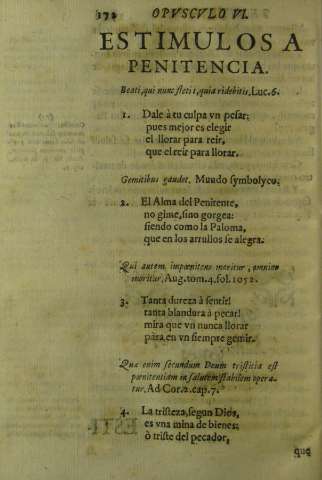 172 OPVSCVLO VI.
ESTIMULOS A
PENITENCIA.
Beati, qui nunc fleti t, quia ridebitis, Luc. 6.
1. Dale à tu culpa vn pesar;
pues mejor es elegir
el llorar para reir,
que el reir para llorar.
Gemitibus gaudet. Mundo symbolyco.
2. El Alma del Penitente,
no gime, sino gorgea:
siendo como la Paloma,
que en los arrullos se alegra.
Qui autem impœnitens moritur, omnino
moritur, Aug. tom. 4. fol. 1052.
3. Tanta dureza à sentir!
tanta blandura à pecar!
mira que vn nunca llorar
pàra en vn siempre gemir.
Quæ enim secundum Deum tristitia est
pœnitentiam in salutem stabilem opera-
tur. Ad Cor. 2. cap. 7.
4. La tristeza, segun Dios,
es vna mina de bienes:
ò triste del pecador,
que